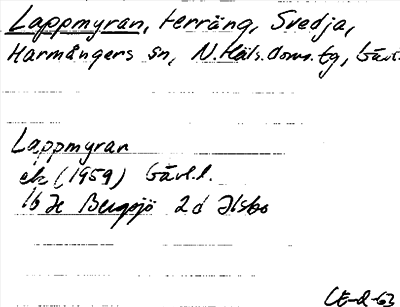 Lappmyran, terräng, Svedja,
Harmångers sn, N. Häls. doms. tg, Gävl.
Lappmyran
ek (1959) Gävl.l.
16 H Bergsjö 2d Ilsbo
CE-2-63